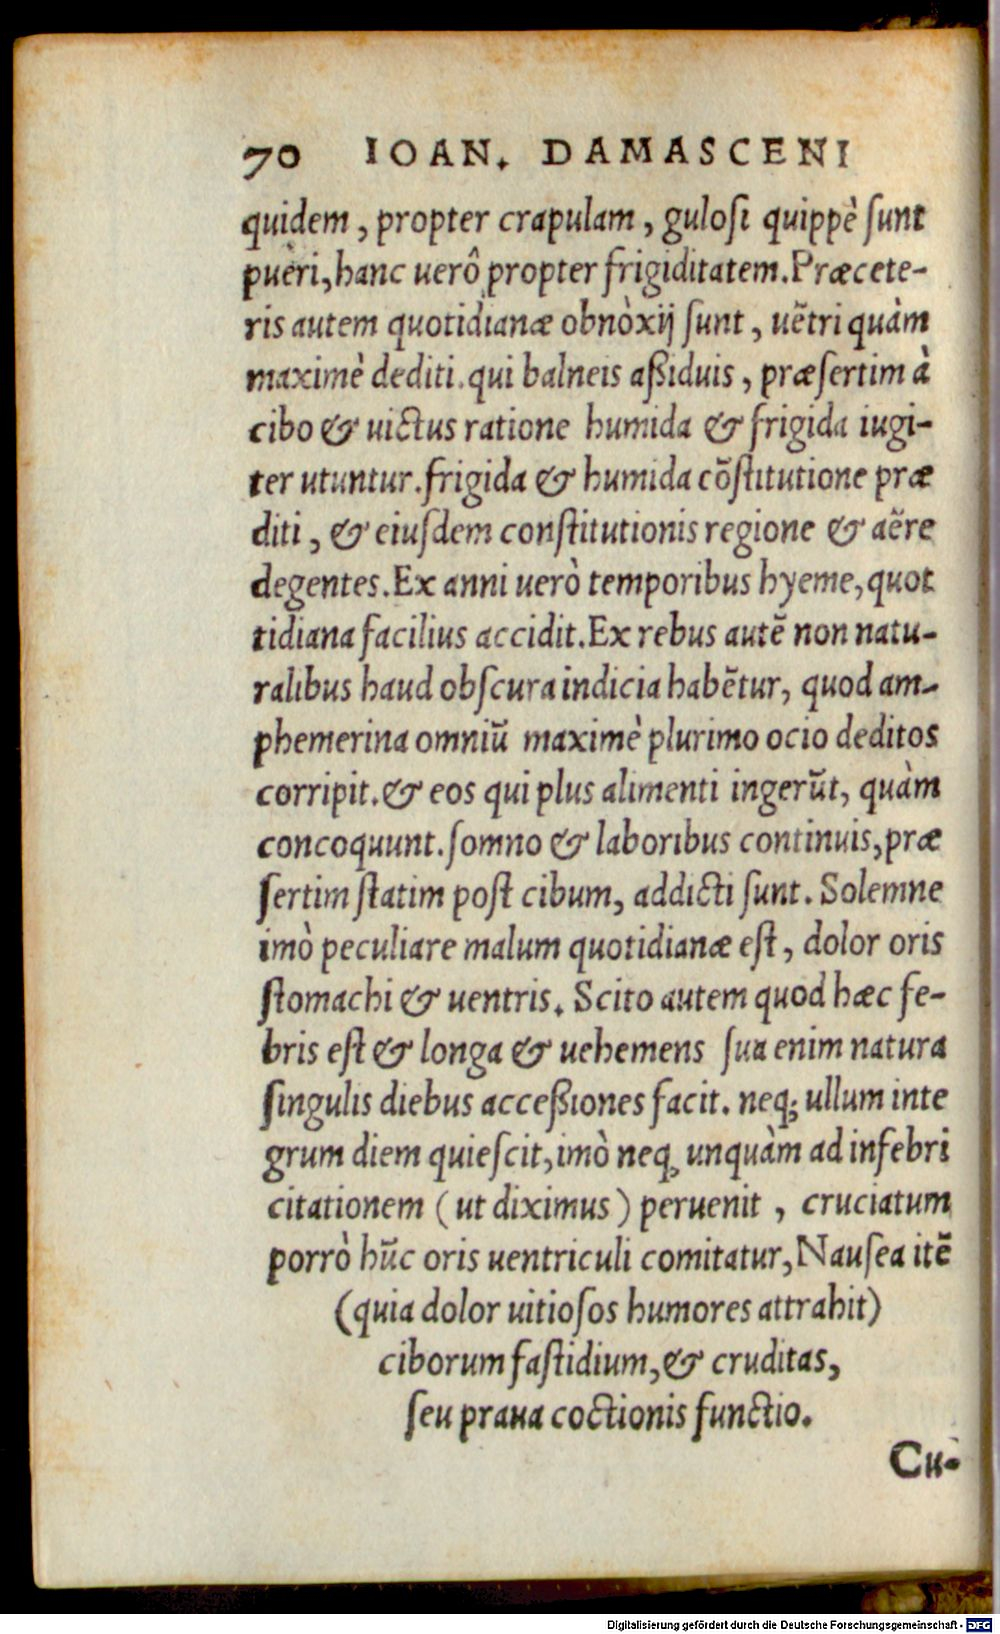 70 IOAN. DAMASCENI
quidem, propter crapulam, gulosi quippè sunt
puèri, hanc uerô propter frigiditatem. Præcete-
ris autem quotidianæ obnòxij sunt, uẽtri quàm
maximè dediti. qui balneis aßiduis, præsertim à
cibo & uictus ratione humida & frigida iugi-
ter utuntur. frigida & humida cõstitutione præ
diti, & eiusdem constitutionis regione & aëre
degentes. Ex anni uerò temporibus hyeme, quot
tidiana facilius accidit. Ex rebus autẽ non natu-
ralibus haud obscura indicia habẽtur, quod am-
phemerina omniũ maximè plurimo ocio deditos
corripit. & eos qui plus alimenti ingerũt, quàm
concoquunt. somno & laboribus continuis, præ
sertim statim post cibum, addicti sunt. Solemne
imò peculiare malum quotidianæ est, dolor oris
stomachi & uentris. Scito autem quod hæc fe-
bris est & longa & uehemens sua enim natura
singulis diebus acceßiones facit. neq; ullum inte
grum diem quiescit, imò neq; unquàm ad infebri
citationem (ut diximus) peruenit, cruciatum
porrò hũc oris uentriculi comitatur, Nausea itẽ
(quia dolor uitiosos humores attrahit)
ciborum fastidium, & cruditas,
seu praua coctionis functio.
Cu-
Digitalisierung gefördert durch die Deutsche Forschungsgemeinschaft - DFG